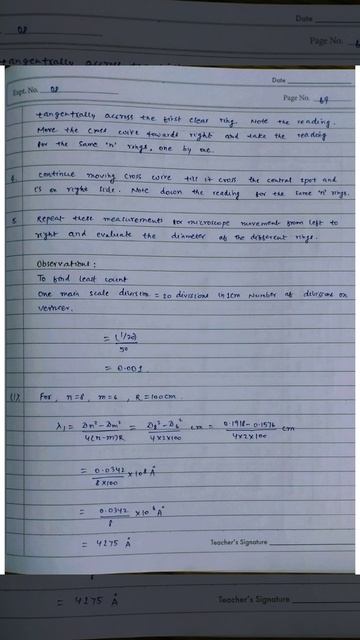 08
Date
Page No.
tangentrally across the
Expt. No. 08
Date
Page No. 49
tangentrally across the first clear ring. Note the reading.
Move the cross wire towards right and take the reading
for the same 'n' rings, one by one.
4. Continue moving cross wire till it cross the central spot and
is on right side. Note down the reading for the same 'n' rings.
5. Repeat these measurements for microscope movement from left to
right and evaluate the diameter of the different rings.
Observations:
To find least count
One main scale division = 20 divisions in 1cm Number of divisions on
vernier.
= (1/20)/50
= 0.001
(1) For, n=8, m=6, R=100cm.
λ1 = Dn² - Dm² / 4(n-m)R = D8² - D6² / 4x2x100 cm = 0.1918 - 0.1576 / 4x2x100 cm
= 0.0342 / 8x100 x10⁸ Å
= 0.0342 / 8 x10⁶ Å
= 4275 Å
Teacher's Signature
= 4275 Å
Teacher's Signature